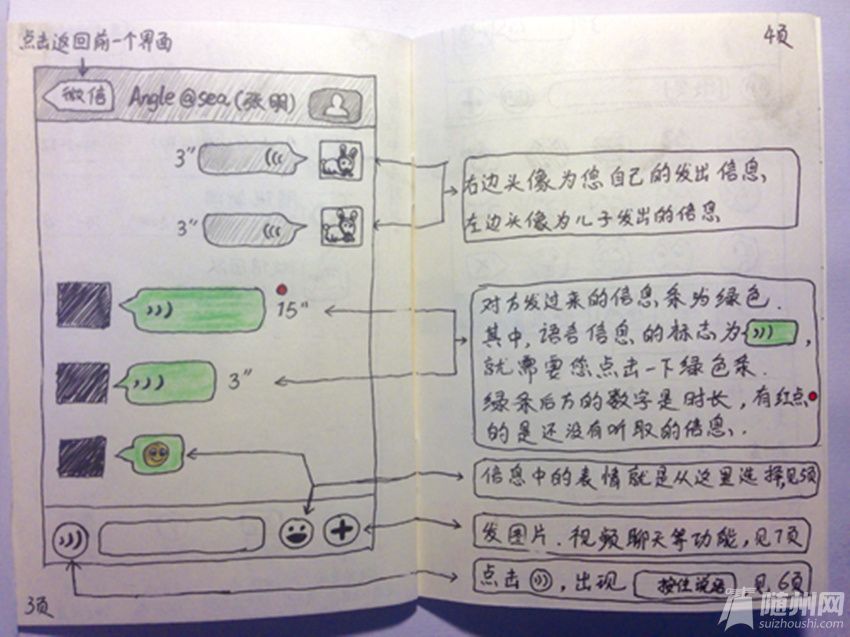 点击返回前一个界面
微信
Angle@sea(张明)
3"
3"
15"
3"
3页
4页
右边头像为您自己的发出信息、
左边头像为儿子发出的信息
对方发过来的信息条为绿色.
其中,语音信息的标志为 ,
就需要您点击一下绿色条.
绿条后方的数字是时长,有红点
的是还没有听取的信息.
信息中的表情就是从这里选择,见5页
发图片.视频聊天等功能,见7页
点击 ,出现 按住说话 见6页
随州网
suizhoushi.com